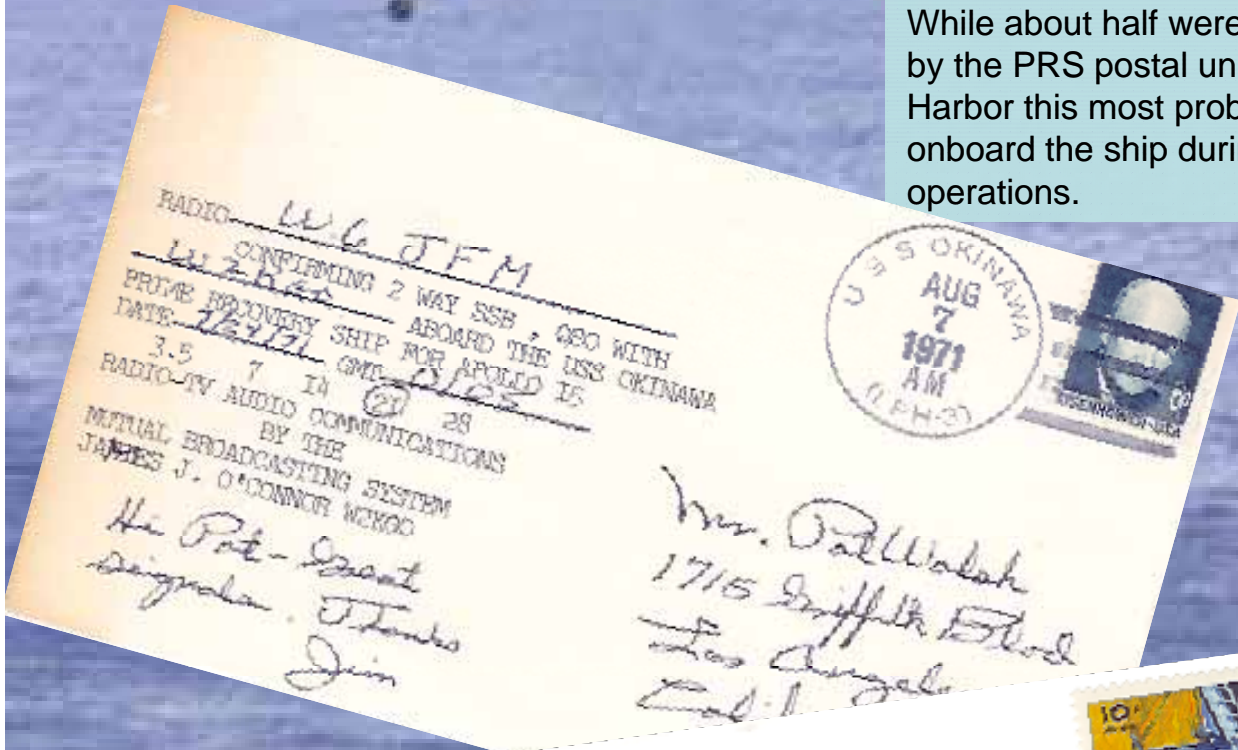 While about half were
by the PRS postal un
Harbor this most prob
onboard the ship duri
operations.
RADIO W6 JFM
CONFIRMING 2 WAY SSB , QSO WITH
ABOARD THE USS OKINAWA
PRIME RECOVERY SHIP FOR APOLLO 15
DATE 7/24/71 GMT
3.5 7 14 21 28
RADIO-TV AUDIO COMMUNICATIONS
BY THE
MUTUAL BROADCASTING SYSTEM
JAMES J. O'CONNOR
Hi Pat - Great
Signals. Thanks
Jim
USS OKINAWA
AUG
7
1971
AM
(LPH-3)
EISENHOWER·USA
Mr. Pat Walsh
1715 Griffith Blvd
Los Angeles
Calif
10